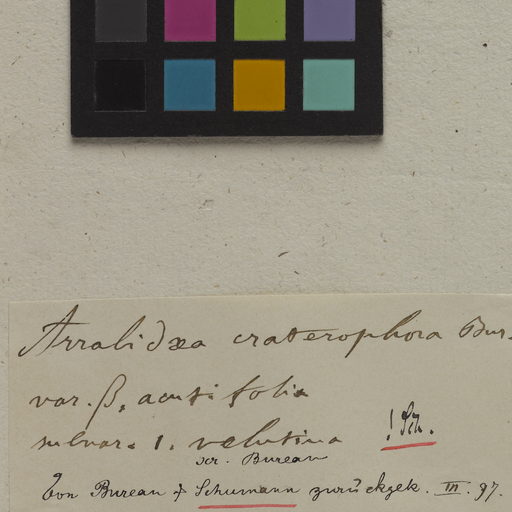 Arrabidaea craterophora Bur.
var. β, acutifolia
subvar. 1. velutina
!Sch.
scr. Bureau
Von Bureau & Schumann zurückgek. III. 97.